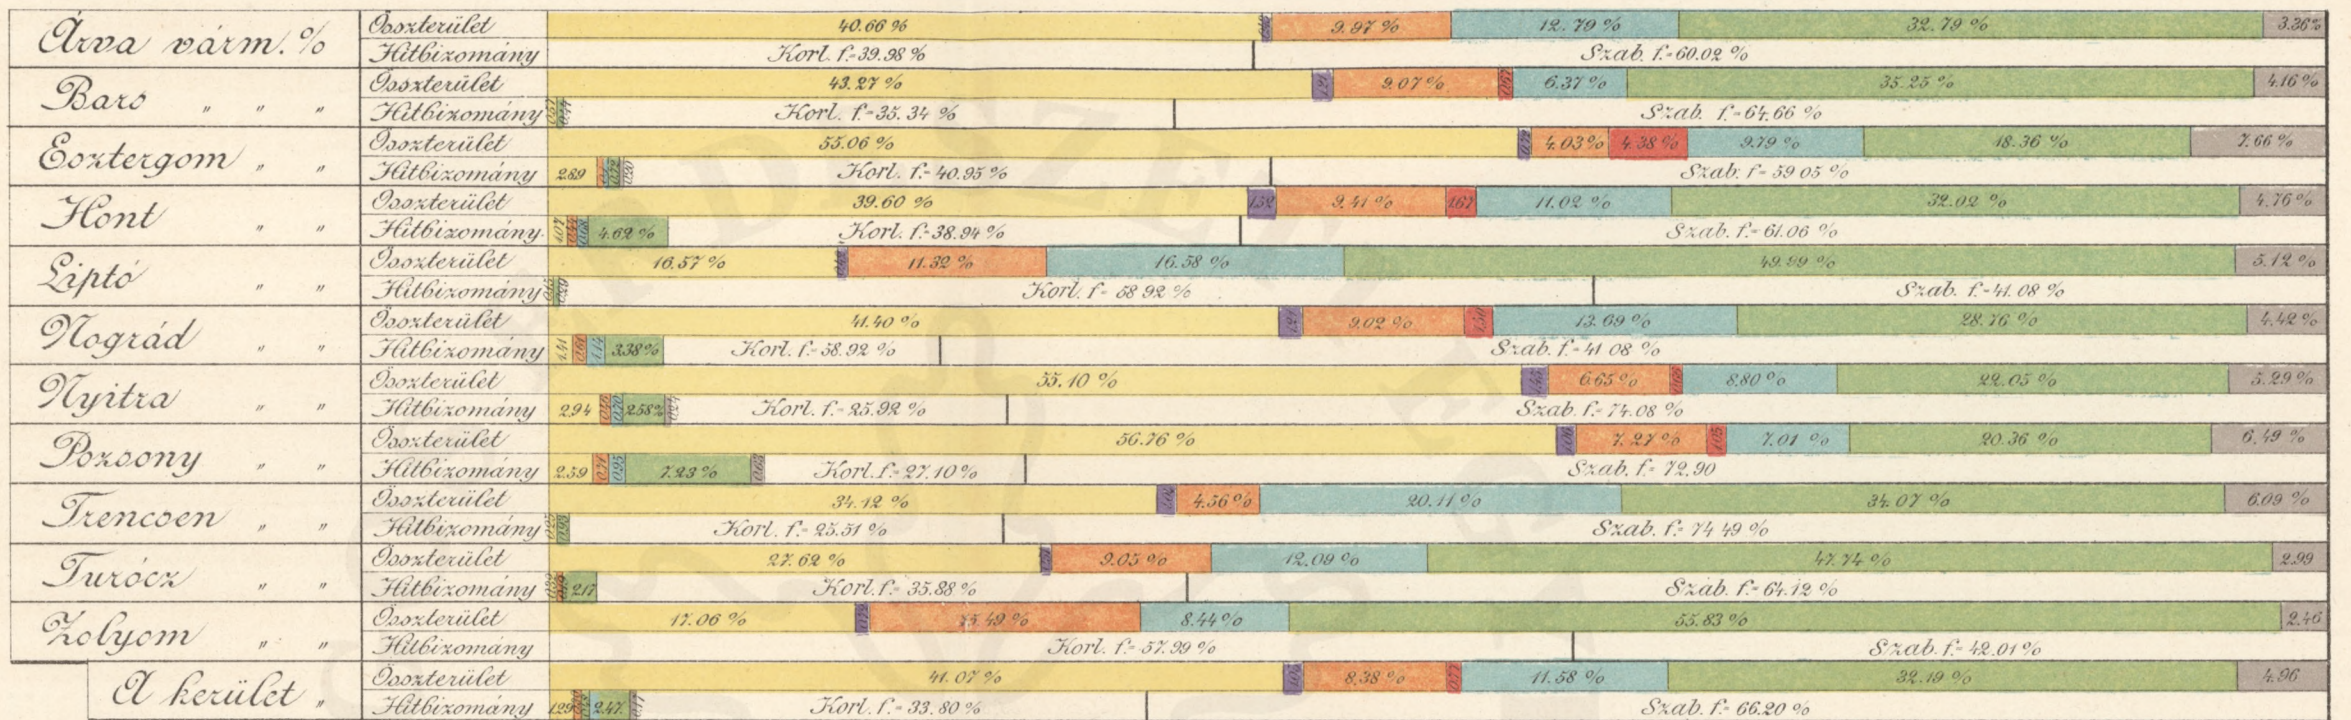 Árva várm. % Összterület 40.66 % 9.97 % 12.79 % 32.79 % 3.36%
Hitbizomány Korl. f.=39.98 % Szab. f.=60.02 %
Bars " " " Összterület 43.27 % 1.21 9.07 % 6.37 % 35.25 % 4.16 %
Hitbizomány Korl. f.=35.34 % Szab. f.=64.66 %
Esztergom " " Összterület 55.06 % 0.72 4.03 % 4.38 % 9.79 % 18.36 % 7.66 %
Hitbizomány 2.89 Korl. f.=40.95 % Szab. f=59 05 %
Hont " " Összterület 39.60 % 1.52 9.41 % 1.67 11.02 % 32.02 % 4.76 %
Hitbizomány 1.07 4.62 % Korl. f.=38.94 % Szab. f.=61.06 %
Liptó " " Összterület 16.57 % 11.32 % 16.58 % 49.99 % 5.12 %
Hitbizomány Korl. f= 58 92 % Szab. f.=41.08 %
Nográd " " Összterület 41.40 % 1.21 9.02 % 1.50 13.69 % 28.76 % 4.42 %
Hitbizomány 1.41 0.61 1.14 3.38% Korl. f.=58.92 % Szab. f.=41 08 %
Nyitra " " Összterület 55.10 % 6.65 % 8.80 % 22.05 % 5.29 %
Hitbizomány 2.94 2.58% Korl. f.=25.92 % Szab. f.=74.08 %
Pozsony " " Összterület 56.76 % 1.06 7.27 % 1.05 7.01 % 20.36 % 6.49 %
Hitbizomány 2.59 0.71 0.95 7.23 % 0.63 Korl. f.=27.10 % Szab. f.= 72.90
Trencsen " " Összterület 34.12 % 1.02 4.56 % 20.11 % 34.07 % 6.09 %
Hitbizomány 0.93 Korl. f.=25.51 % Szab. f.=74 49 %
Turócz " " Összterület 27.62 % 9.05 % 12.09 % 47.74 % 2.99
Hitbizomány 2.17 Korl. f.= 35.88 % Szab. f.=64.12 %
Zolyom " " Összterület 17.06 % 0.72 15.49 % 8.44 % 55.83 % 2.46
Hitbizomány Korl. f.= 57.99 % Szab. f.= 42.01 %
A kerület " Összterület 41.07 % 8.38 % 0.77 11.58 % 32.19 % 4.96
Hitbizomány 1.29 2.47 Korl. f.= 33.80 % Szab. f.= 66.20 %